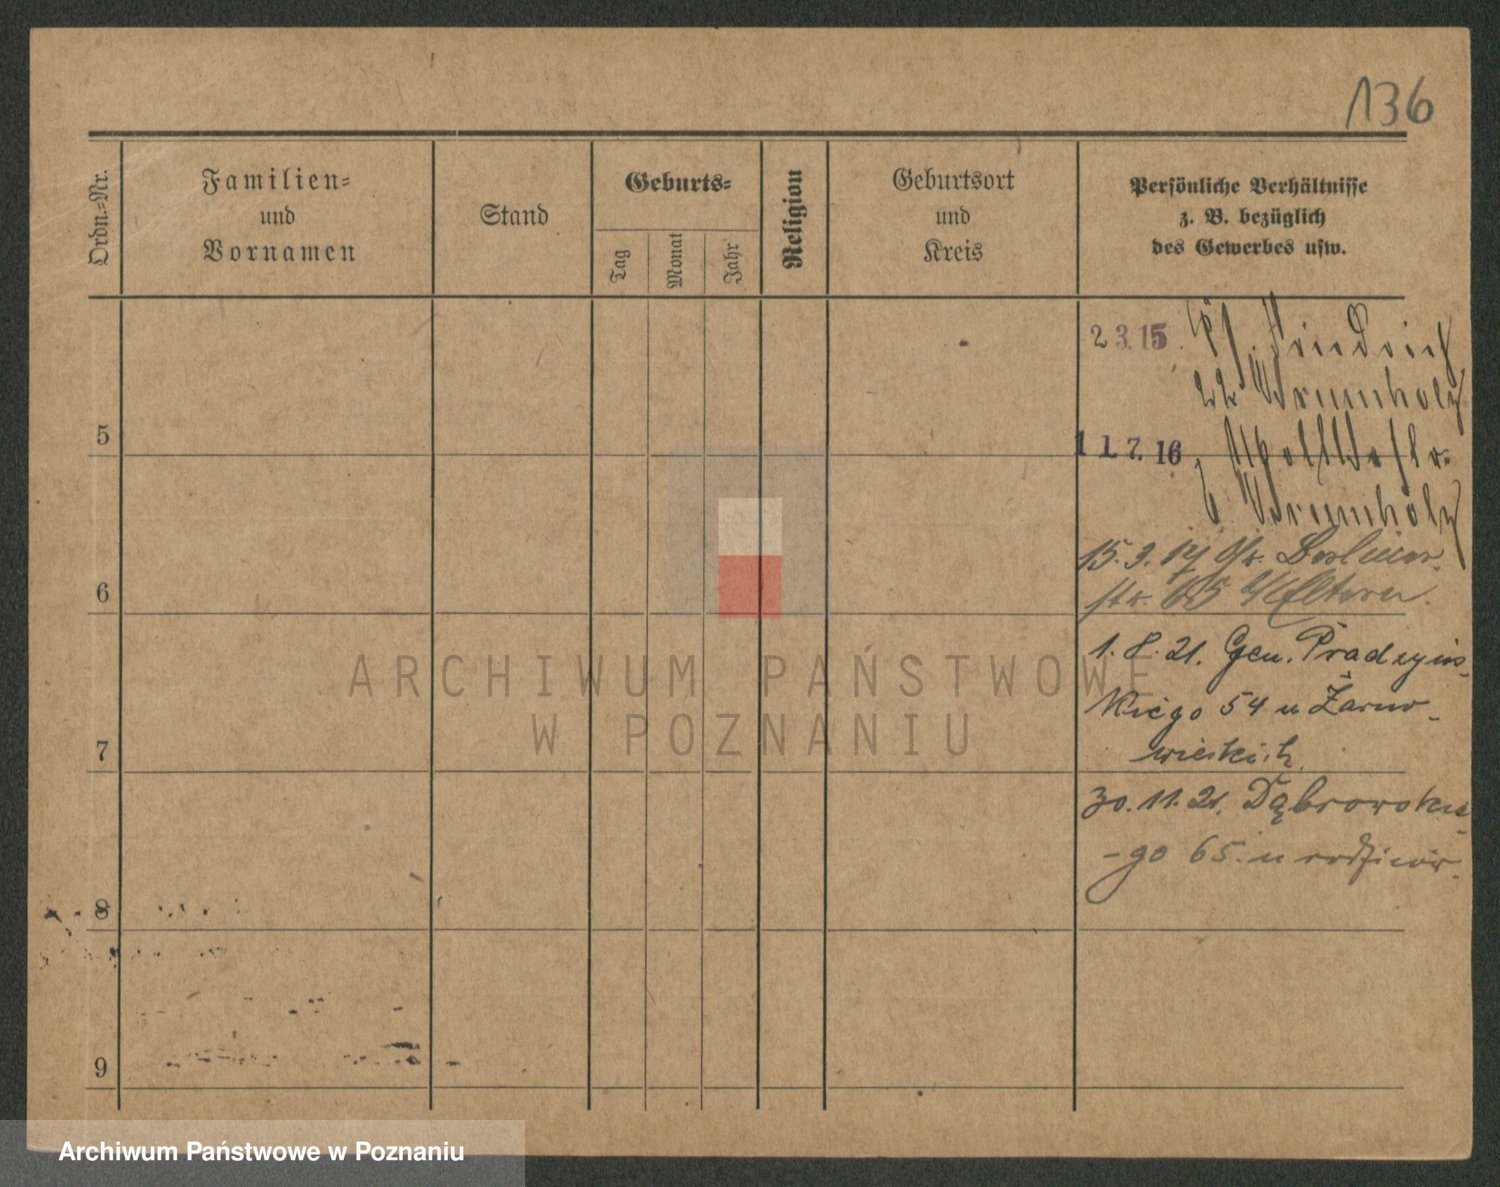 136
Ordn.-Nr.
Familien-
und
Vornamen
Stand
Geburts-
Tag
Monat
Jahr
Religion
Geburtsort
und
Kreis
Persönliche Verhältnisse
z. B. bezüglich
des Gewerbes usw.
2 3. 15. Friedrich
22
5
11 7. 16
6
15. 9. 17
str. 65 Eltern.
1. 8. 21. Gen. Prądzyńs-
kiego 54 u Żarno-
wieckich
7
30. 11. 21. Dąbrowskie-
-go 65. u rodziców.
8
9
ARCHIWUM PAŃSTWOWE
W POZNANIU
Archiwum Państwowe w Poznaniu